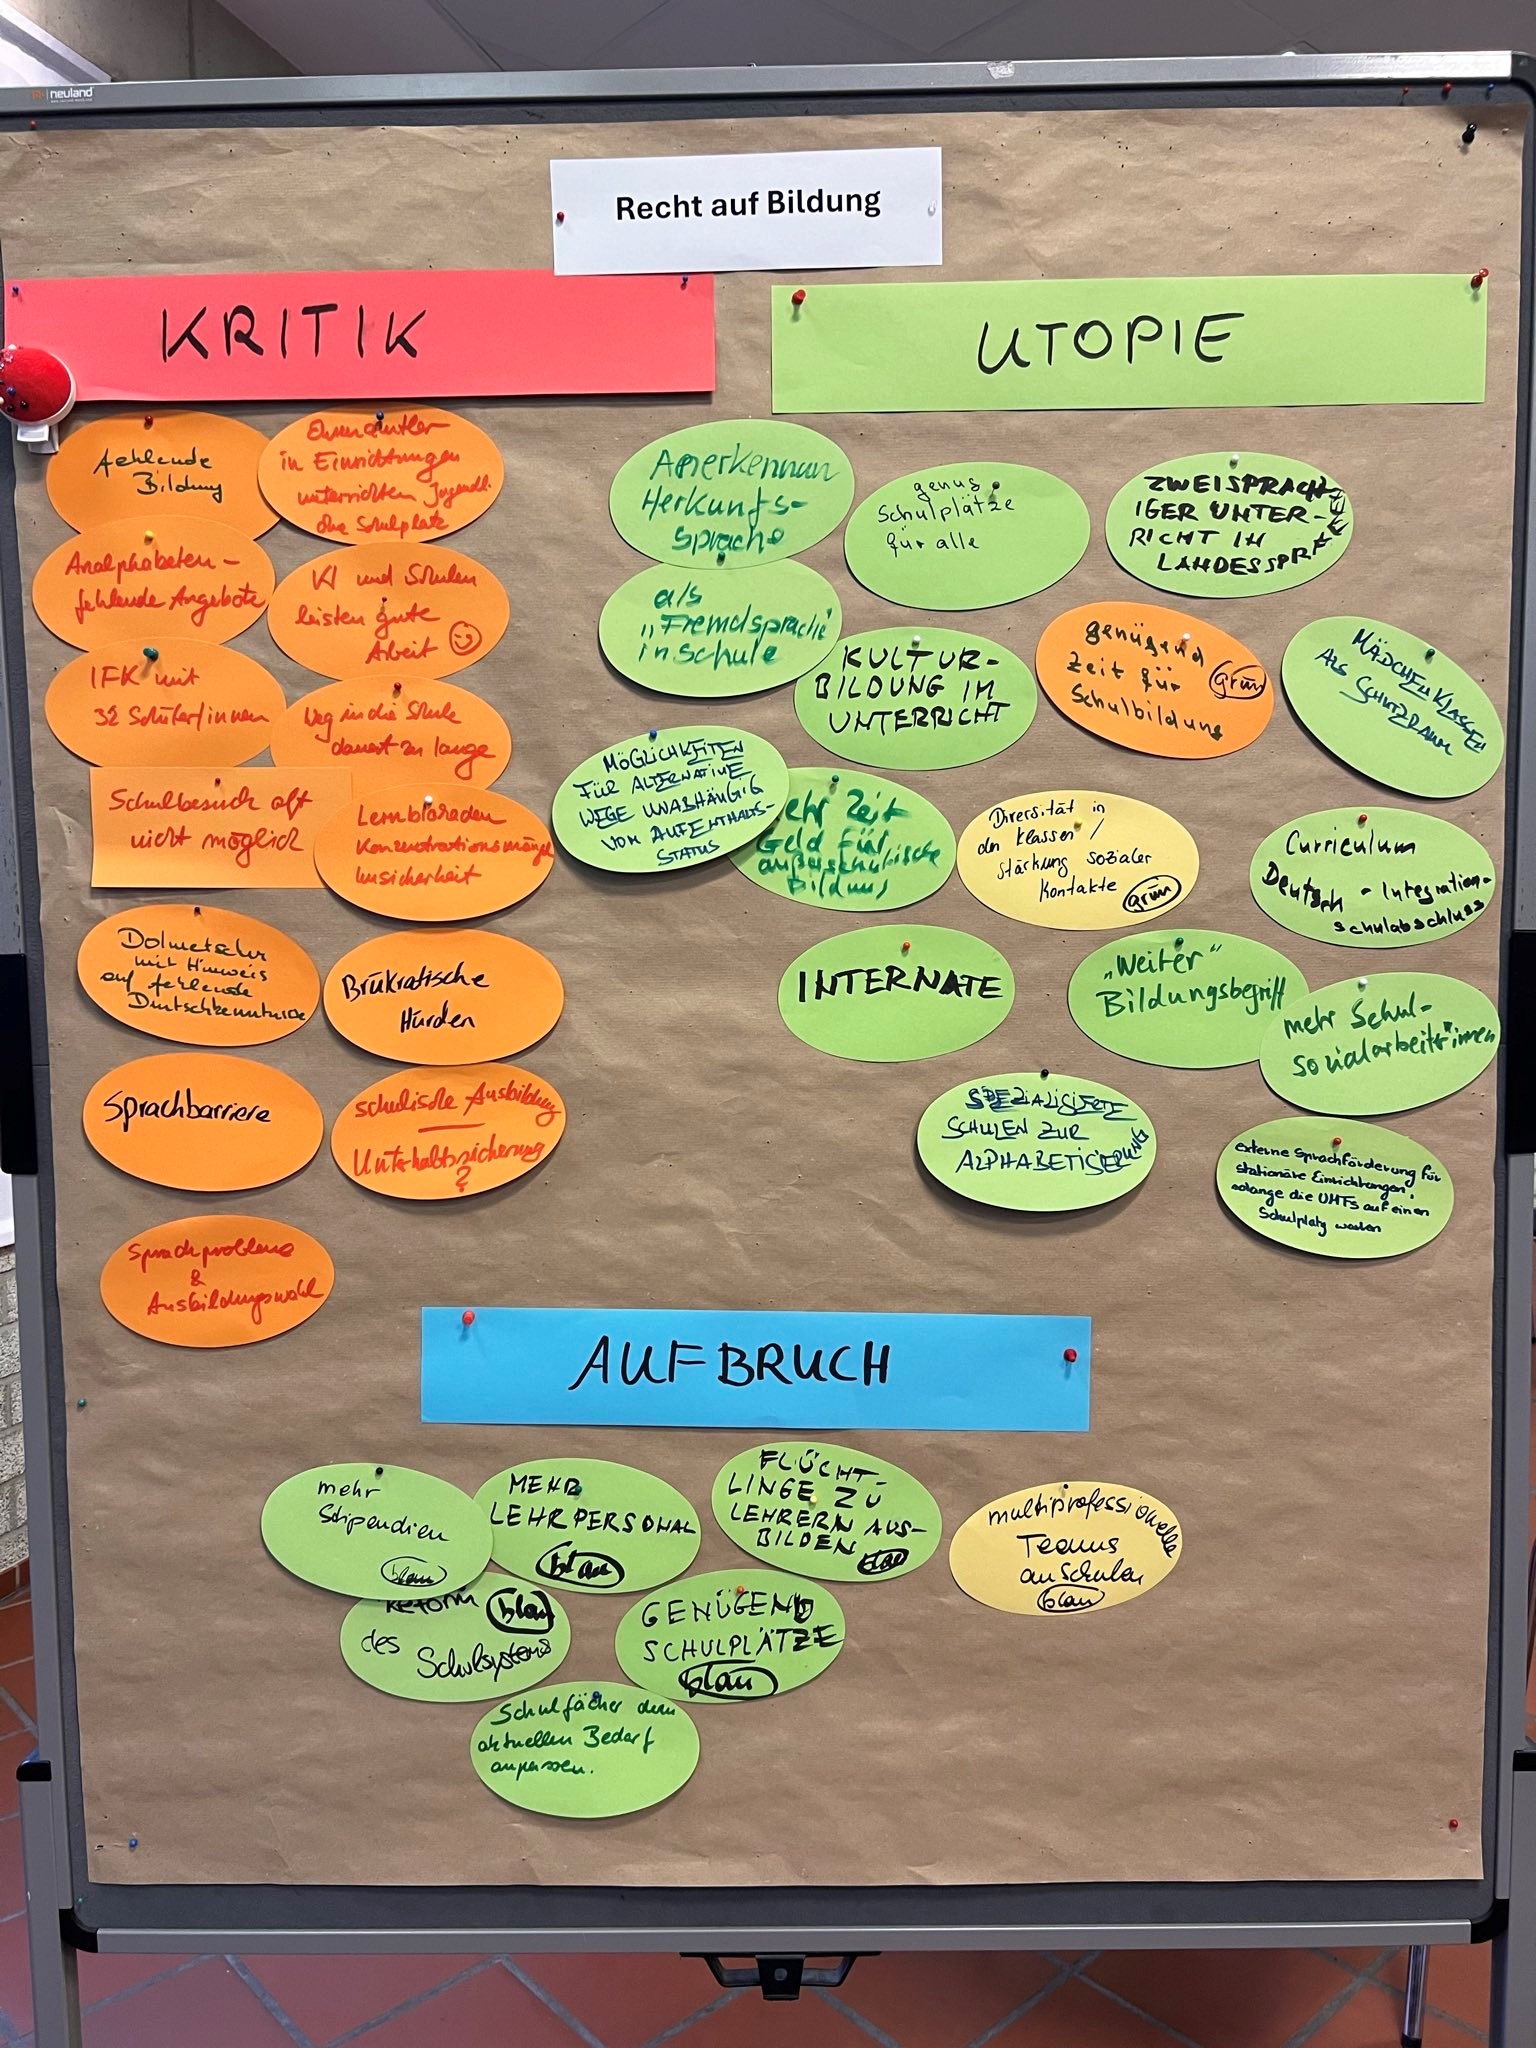 neuland
Recht auf Bildung
KRITIK
UTOPIE
fehlende
Bildung
Ehrenämtler
in Einrichtungen
unterrichten Jugendl.
ohne Schulplatz
Analphabeten -
fehlende Angebote
KI und Schulen
leisten gute
Arbeit
IFK mit
32 Schüler/innen
Weg in die Schule
dauert zu lange
Schulbesuch oft
nicht möglich
Lernblockaden
Konzentrationsmängel
Unsicherheit
Dolmetscher
mit Hinweis
auf fehlende
Deutschkenntnisse
Brükratische
Hürden
Sprachbarriere
schulische Ausbildung
Unterhaltssicherung
?
Sprachprobleme
&
Ausbildungswahl
Anerkennun
Herkunfts-
sprache
als
„Fremdsprache"
in Schule
genug
Schulplätze
für alle
ZWEISPRACH-
IGER UNTER-
RICHT IN
LANDESSPR
KULTUR-
BILDUNG IM
UNTERRICHT
genügend
Zeit für
Schulbildung
grün
MÄDCHENKLASSEN
ALS SCHUTZRAUM
MÖGLICHKEITEN
FÜR ALTERNATIVE
WEGE UNABHÄNGIG
VOM AUFENTHALTS-
STATUS
mehr Zeit
Geld für
außerschulische
Bildung
Diversität in
den Klassen /
Stärkung sozialer
Kontakte
grün
Curriculum
Deutsch - Integration-
schulabschluss
INTERNATE
„Weiter"
Bildungsbegriff
mehr Schul-
sozialarbeiter*innen
SPEZIALISIERTE
SCHULEN ZUR
ALPHABETISIERUNG
externe Sprachförderung für
stationäre Einrichtungen,
solange die UMFs auf einen
Schulplatz warten
AUFBRUCH
mehr
Stipendien
blau
MEHR
LEHRPERSONAL
blau
FLÜCHT-
LINGE ZU
LEHRERN AUS-
BILDEN
blau
multiprofessionelle
Teams
an Schulen
blau
Reform
blau
des
Schulsystems
GENÜGEND
SCHULPLÄTZE
blau
Schulfächer dem
aktuellen Bedarf
anpassen.